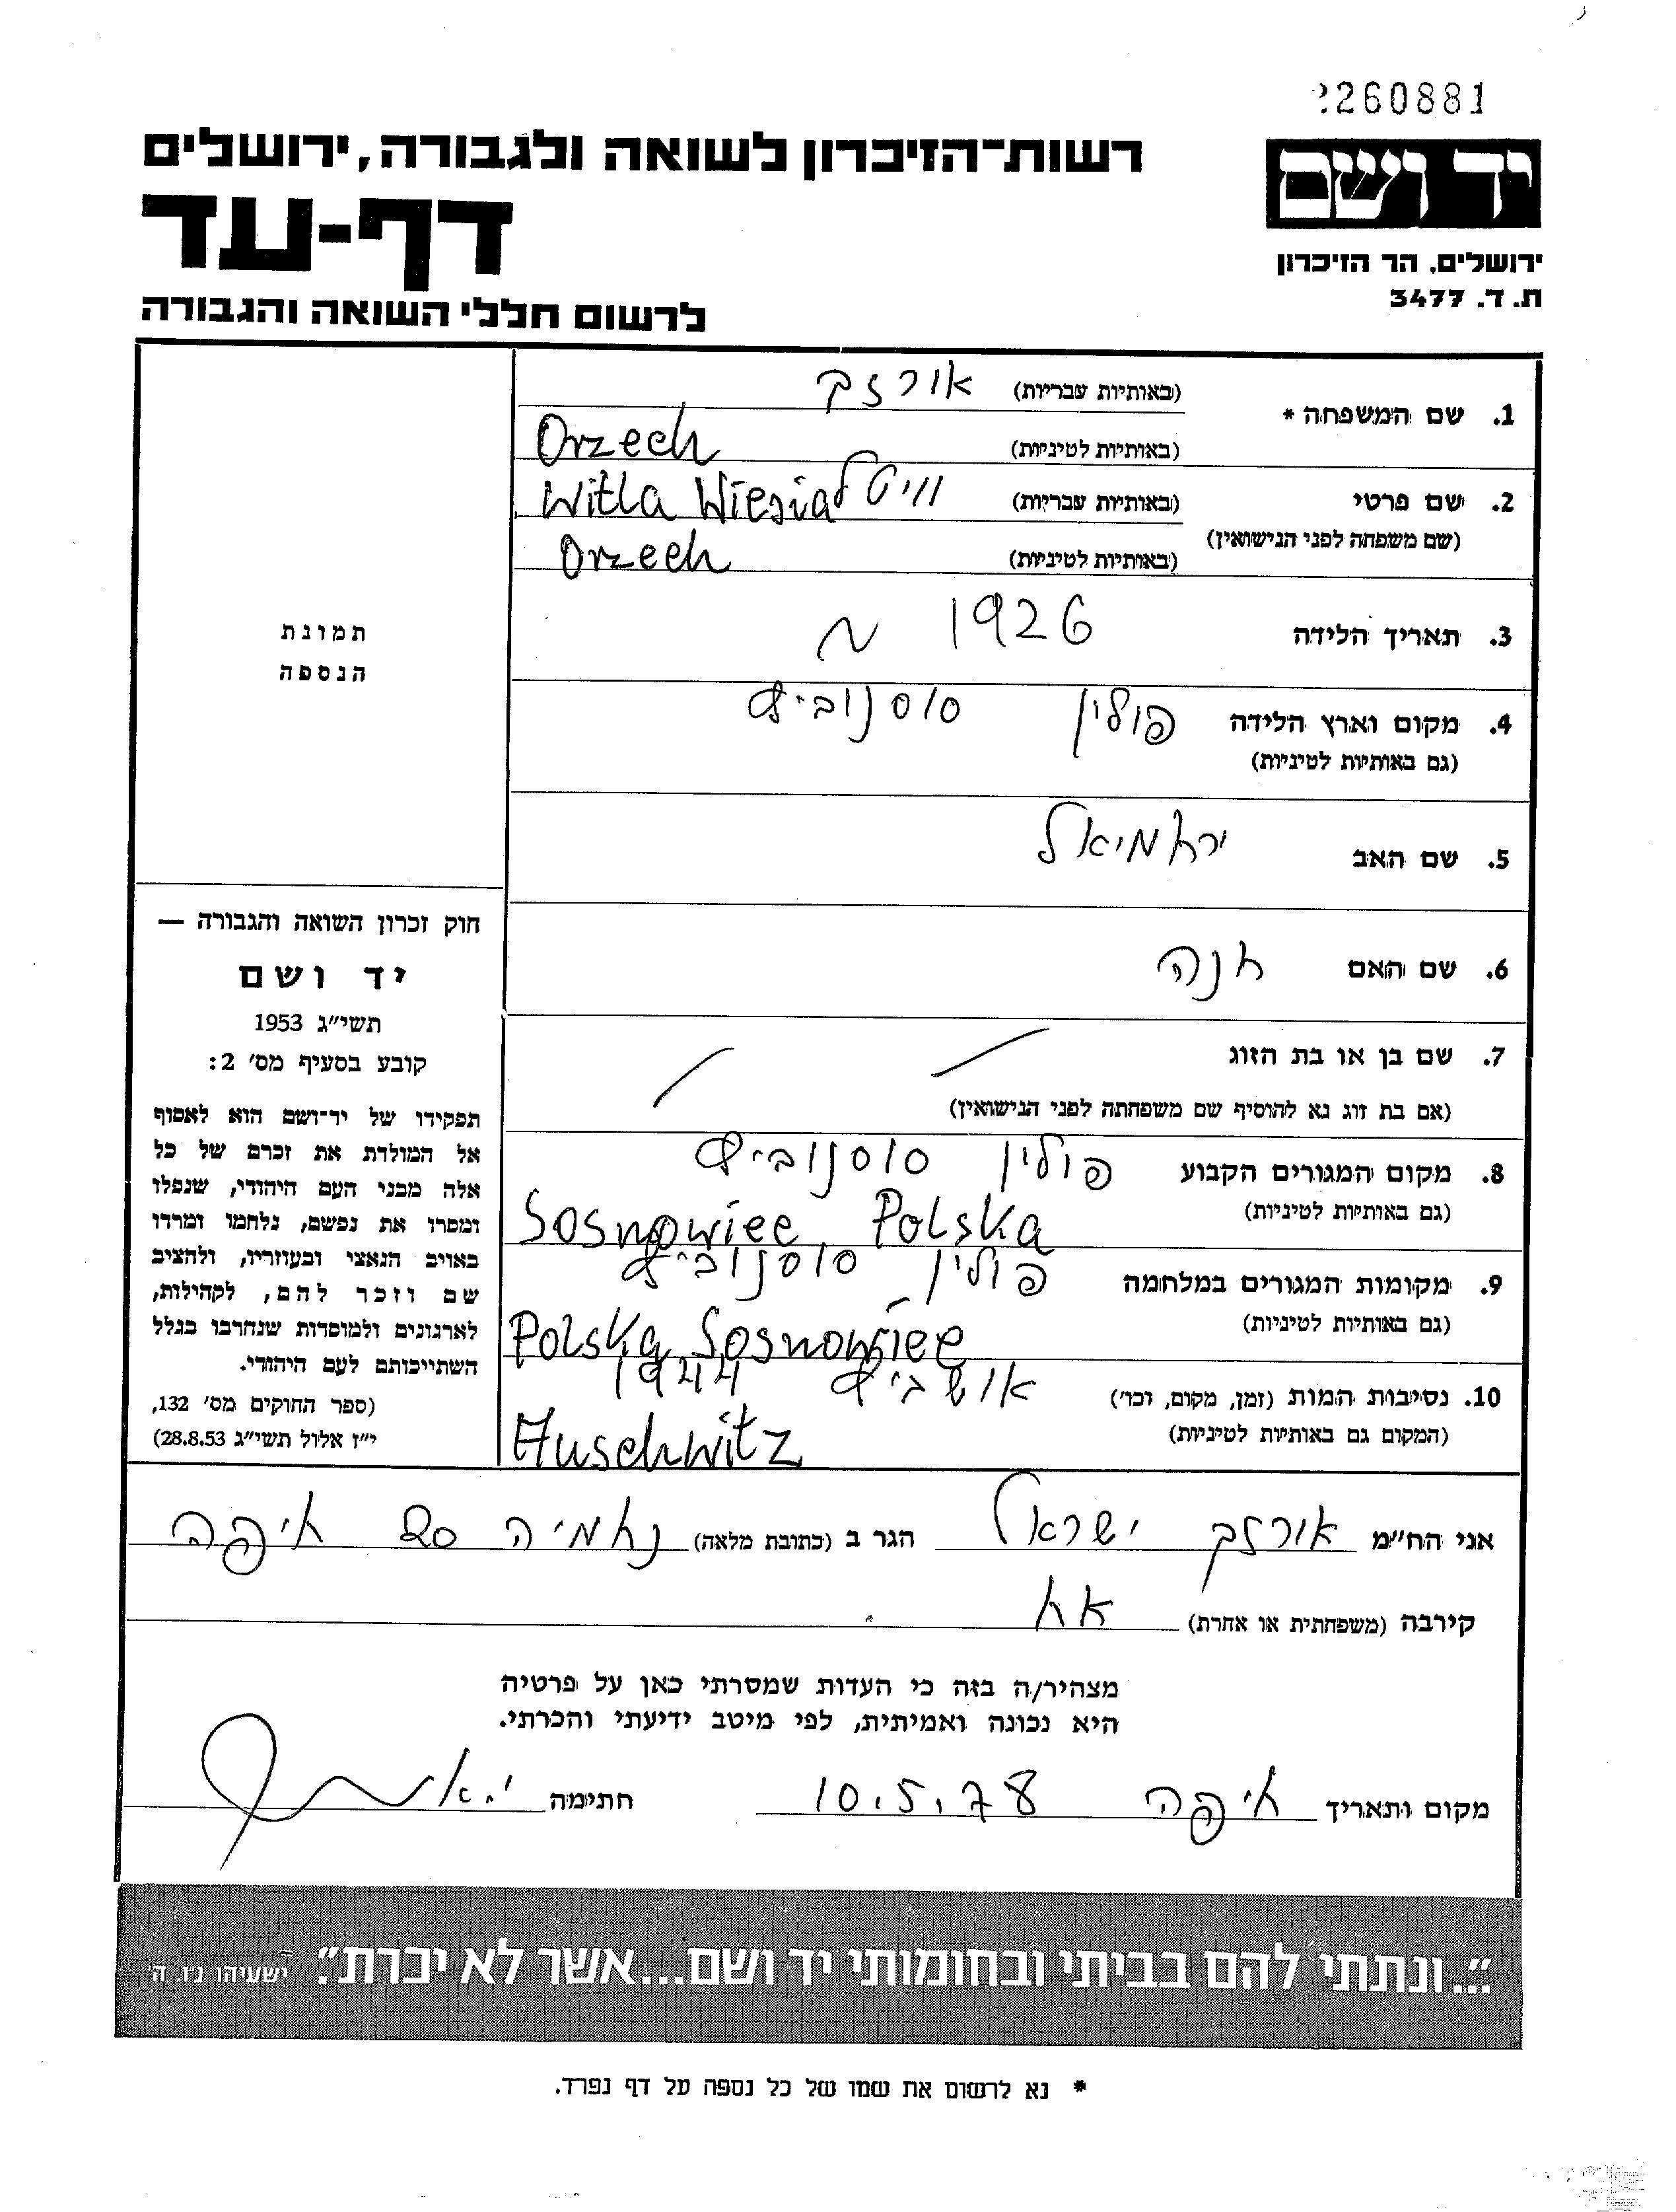 260881
יד ושם
ירושלים, הר הזיכרון
ת. ד. 3477
רשות־הזיכרון לשואה ולגבורה, ירושלים
דף-עד
לרשום חללי השואה והגבורה
1. שם המשפחה * (באותיות עבריות) אורזך
(באותיות לטיניות) Orzech
2. שם פרטי (באותיות עבריות) וויטל Witla Wiesia
(שם משפחה לפני הנישואין)
(באותיות לטיניות) Orzech
3. תאריך הלידה 1926 ~
4. מקום וארץ הלידה פולין סוסנוביץ
(גם באותיות לטיניות)
5. שם האב ירחמיאל
6. שם האם חנה
7. שם בן או בת הזוג
(אם בת זוג נא להוסיף שם משפחתה לפני הנישואין)
8. מקום המגורים הקבוע פולין סוסנוביץ
(גם באותיות לטיניות) Sosnowiec, Polska
9. מקומות המגורים במלחמה פולין סוסנוביץ
(גם באותיות לטיניות) Polska Sosnowiec
10. נסיבות המות (זמן, מקום, וכו') אושביץ 1944
(המקום גם באותיות לטיניות) Auschwitz
תמונת
הנספה
חוק זכרון השואה והגבורה —
יד ושם
תשי"ג 1953
קובע בסעיף מס' 2:
תפקידו של יד־ושם הוא לאסוף
אל המולדת את זכרם של כל
אלה מבני העם היהודי, שנפלו
ומסרו את נפשם, נלחמו ומרדו
באויב הנאצי ובעוזריו, ולהציב
שם וזכר להם, לקהילות,
לארגונים ולמוסדות שנחרבו בגלל
השתייכותם לעם היהודי.
(ספר החוקים מס' 132,
י"ז אלול תשי"ג 28.8.53)
אני הח"מ אורזך ישראל הגר ב (כתובת מלאה) נחמיה 20 חיפה
קירבה (משפחתית או אחרת) אח
מצהיר/ה בזה כי העדות שמסרתי כאן על פרטיה
היא נכונה ואמיתית, לפי מיטב ידיעתי והכרתי.
מקום ותאריך חיפה 10.5.78 חתימה
"...ונתתי להם בביתי ובחומותי יד ושם...אשר לא יכרת". ישעיהו נ"ו, ה'
* נא לרשום את שמו של כל נספה על דף נפרד.